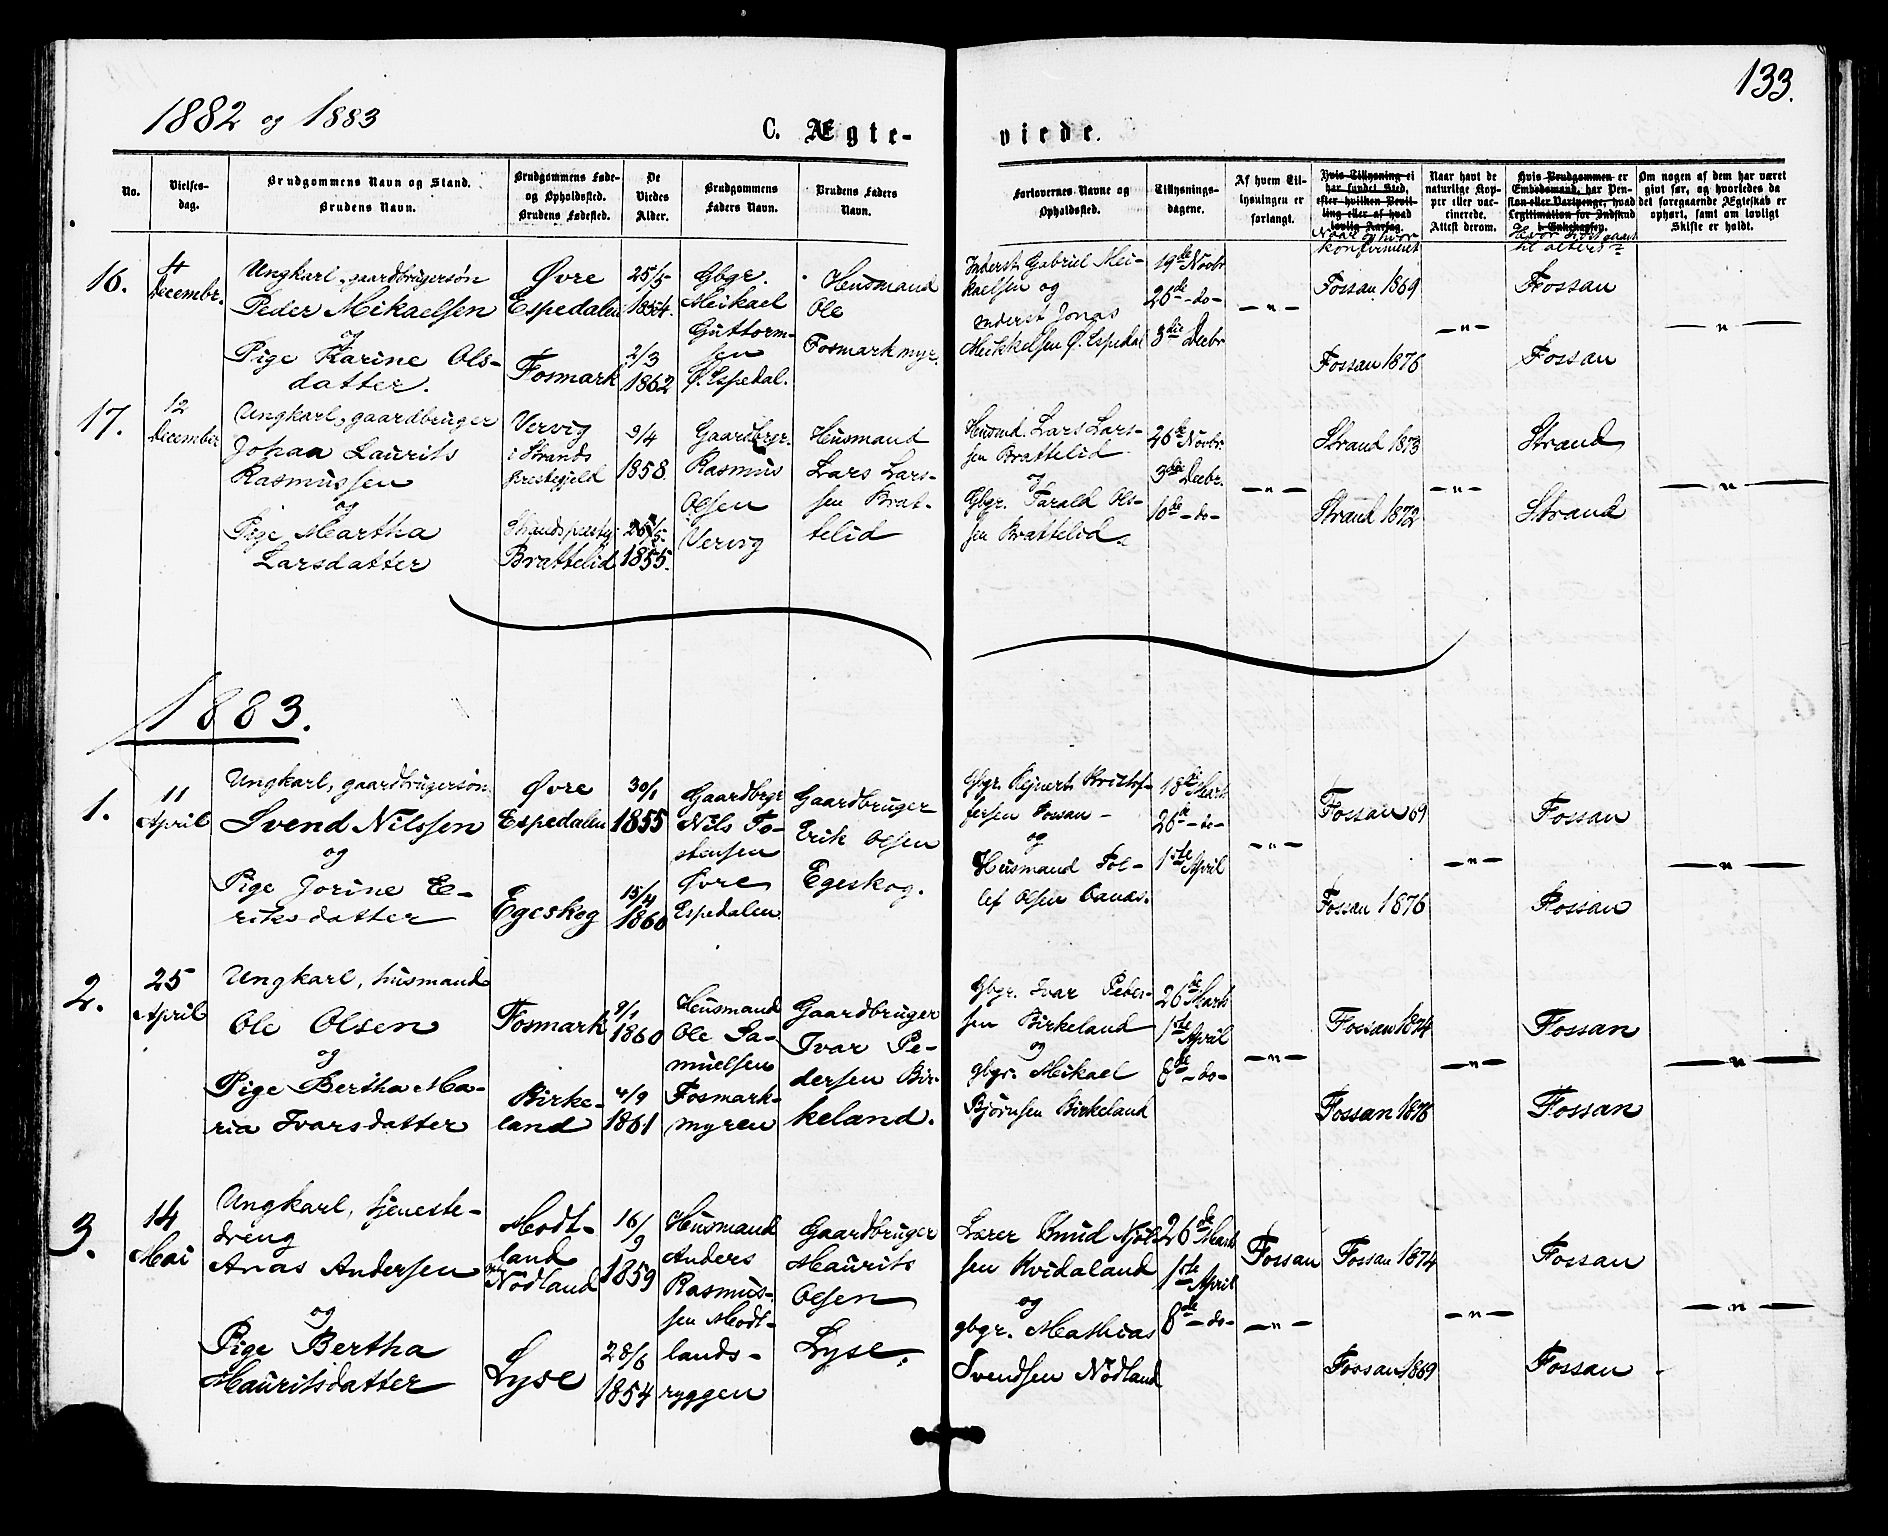 133.
1882 og 1883
C. Ægte-
viede.
No.
Vielses-
dag.
Brudgommens Navn og Stand.
Brudens Navn.
Brudgommens Føde-
og Opholdssted.
Brudens Fødested.
De
Viedes
Alder.
Brudgommens
Faders Navn.
Brudens Faders
Navn.
Forlovernes Navne og
Opholdssted.
Tillysnings-
dagene.
Af hvem Til-
lysningen er
forlangt.
Hvis Tillysning ei
har fundet Sted,
efter hvilken Bevil-
ling eller af hvad
lovlig Aarsag.
Naar og hvor
konfirmeret
Naar havt de
naturlige Kop-
per eller vac-
cinerede.
Attest derom.
Hvis Brudgommen er
Embedsmand, har Pen-
sion eller Vartpenge, hvad
Legitimation for Indskud
i Enkekassen.
Hvor sidst gaaet
til alters
Om nogen af dem har været
givt før, og hvorledes da
det foregaaende Ægteskab er
ophørt, samt om lovligt
Skifte er holdt.
16.
Decembr.
Ungkarl, gaardbrugersøn
Peder Mikaelsen
og
Pige Karine Ols-
datter.
Øvre
Espedalen
Fosmark
25/5
1854.
2/3
1862
Gbgr.
Meikael
Guttorm-
sen
Ø. Espedal.
Husmand
Ole
Fosmarkmyr.
Inderst Gabriel Mei-
kaelsen og
inderst Jonas
Meikkelsen Ø. Espedal
19de Novbr.
26de -do-
3die Decbr
-"-
Fossan 1869
Fossan 1876
-"-
Fossan
Fossan
-"-
17.
12
December
Ungkarl, gaardbruger
Johan Laurits
Rasmussen
og
Pige Martha
Larsdatter
Vervig
i Strands
prestegjeld
Strands prestgj
Brattelid
9/4
1858.
25/5.
1855.
Gaardbrgr.
Rasmus
Olsen
Vervig
Husmand
Lars Lars-
sen Brat-
telid
Husmd. Lars Lars-
sen Brattelid
og
Gbgr. Tarald Ols-
sen Brattelid.
26de Novbr.
3die Decbr.
10de -do-
-"-
Strand 1873
Strand 1872
-"-
Strand
Strand
-"-
1883.
1.
11
April
Ungkarl, gaardbrugersøn
Svend Nilssen
og
Pige Jorine E-
riksdatter
Øvre
Espedalen
Egeskog
30/1
1855
15/4
1860
Gaardbrgr
Nils To-
stensen
Øvre
Espedalen
Gaardbruger
Erik Olsen
Egeskog.
Gbgr. Rejnert Kristof-
fersen Fossan -
og
Husmand Tol-
lef Olsen Oanæs.
18de Marts
26de -do-
1ste April
-"-
Fossan 69
Fossan 1876
-"-
Fossan
Fossan
-"-
2.
25
April
Ungkarl, husmand
Ole Olsen
og
Pige Bertha Ma-
ria Ivarsdatter
Fosmark
Birke-
land
9/1
1860
4/9
1861
Husmand
Ole Sa-
muelsen
Fosmark-
myren
Gaardbruger
Ivar Pe-
dersen Bir-
keland.
Gbgr. Ivar Peder-
sen Birkeland
og
gbgr. Mikael
Bjørnsen Birkeland
26de Marts
1ste April
8de -do-
-"-
Fossan 1874
Fossan 1876
-"-
Fossan
Fossan
-"-
3.
14
Mai
Ungkarl, tjeneste-
dreng
Anas Andersen
og
Pige Bertha
Mauritsdatter
Modt-
land
Nødland
Lyse
16/9
1859
28/6
1854
Husmand
Anders
Rasmus-
sen Modt-
lands-
ryggen
Gaardbruger
Maurits
Olsen
Lyse.
Lærer Knud Njæl-
sen Kvidaland
og
gbgr. Mathias
Svendsen Nødland
26de Marts
1ste April
8de -do-
Fossan
-"-
Fossan 1874
Fossan 1869
-"-
Fossan
Fossan
-"-